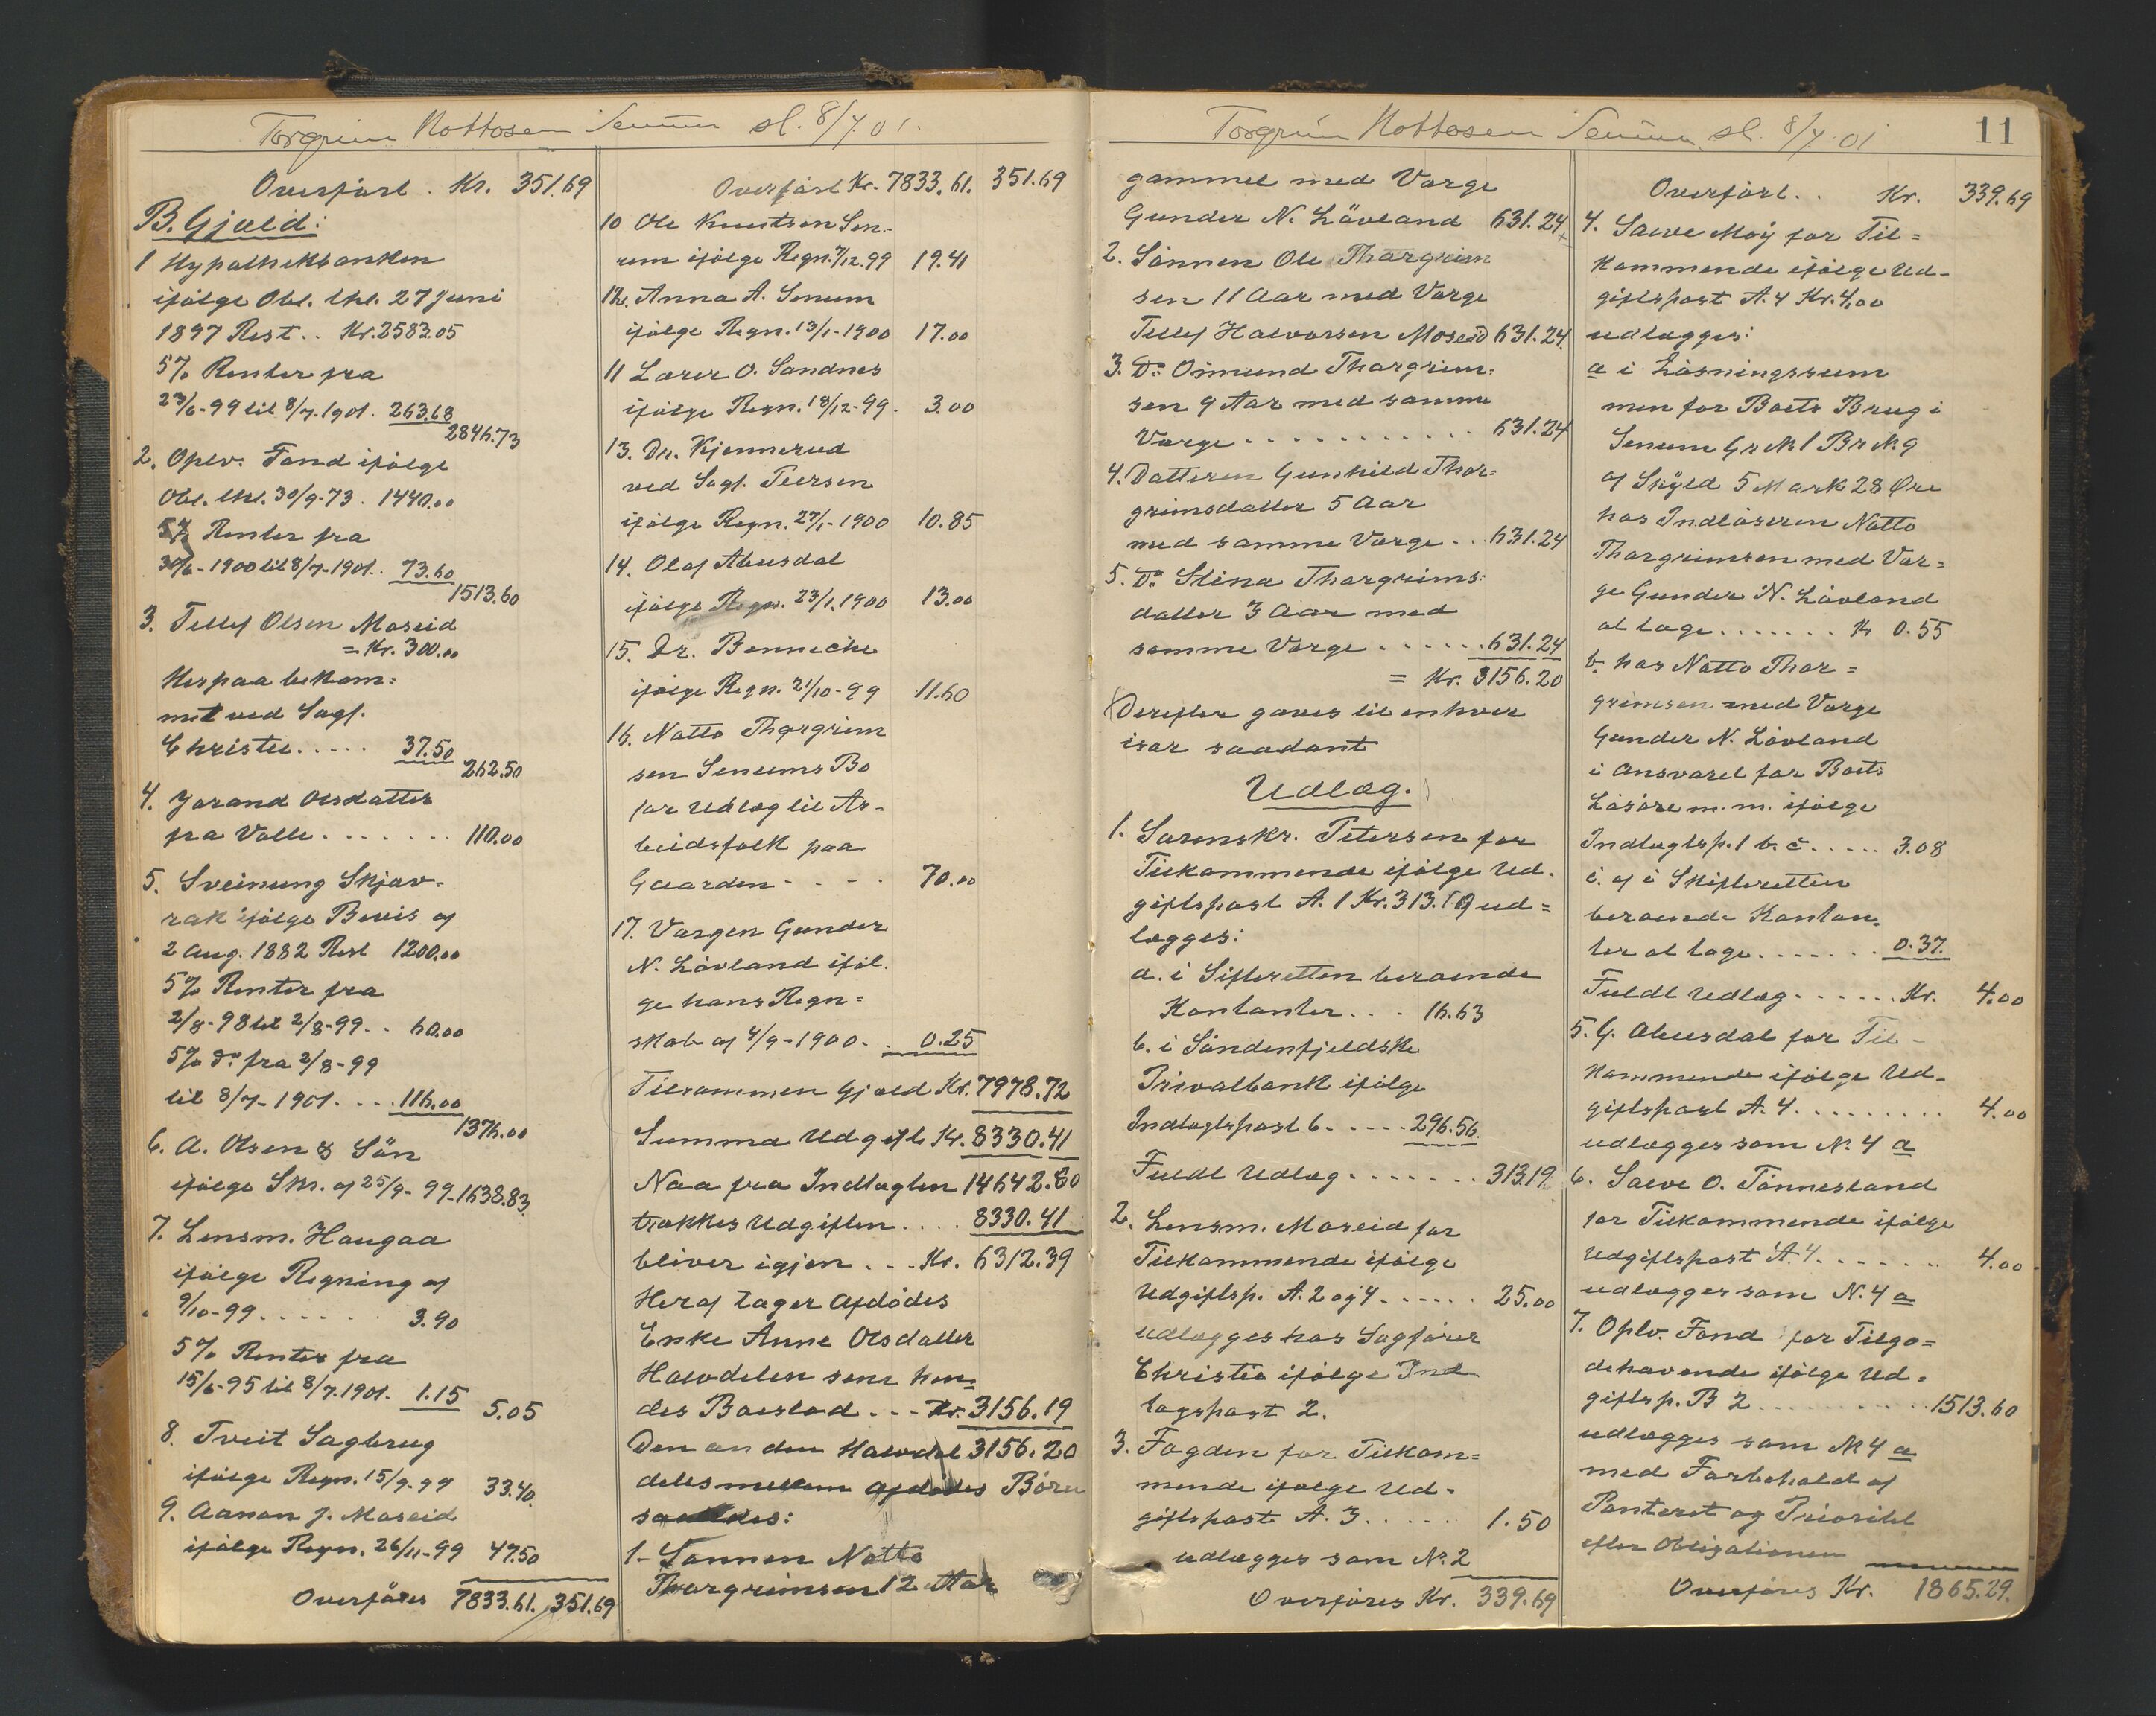 Torgrim Nottosen Senum sl. 8/7.01.
Overført . Kr. 351.69
B. Gjæld:
1 Hypothekbanken
ifølge Obl. thl. 27 Juni
1897 Rest .. Kr. 2583.05
5% Renter fra
23/6-99 til 8/7-1901. 263.68
2846.73
2. Oplv. Fond ifølge
Obl. thl. 30/9-73 . 1440.00
5% Renter fra
30/6-1900 til 8/7-1901.. 73.60
1513.60
3. Tellef Olsen Moseid
= Kr. 300.00
Herpaa bekom=
met ved Sagf.
Christie..... 37.50
262.50
4. Jorand Olsdatter
fra Valle....... 110.00
5. Sveinung Skjæv-
rak ifølge Bevis af
2 Aug. 1882 Rest 1200.00
5% Renter fra
2/8-98 til 2/8-99.. 60.00
5% Do fra 2/8-99
til 8/7-1901.... 116.00
1376.00
6. A. Olsen & Søn
ifølge Skr. af 25/9-99-1638.83.
7. Lensm. Haugaa
ifølge Regning af
9/10-99...... 3.90
5% Renter fra
15/6-95 til 8/7.1901. 1.15
5.05
8. Tveit Sagbrug
ifølge Regn. 15/9-99 33.40.
9. Aanon J. Moseid
ifølge Regn. 26/11-99 47.50
Overføres 7833.61. 351.69
Overført Kr. 7833.61. 351.69
10 Ole Knutsen Sen-
num ifølge Regn. 7/12.99 19.41
12. Anna A. Senum
ifølge Regn. 13/1-1900 17.00
11 Lærer O. Sandnes
ifølge Regn. 18/12-99. 3.00
13. Dr. Kjennerud
ved Sagf. Teersen
ifølge Regn. 27/1-1900 10.85
14. Olaf Abusdal
ifølge Regn. 23/1.1900 13.00
15. Dr. Benneche
ifølge Regn. 21/10-99 11.60
16. Notto Thorgrim
sen Senums Bo
for Udlæg til Ar-
beidsfolk paa
Gaarden - . - . 70.00
17. Værgen Gunder
N. Løvland iføl.
ge hans Regn=
skab af 4/9-1900. . 0.25
Tilsammen Gjæld Kr. 7978.72
Summa Udgift Kr. 8330.41
Naa fra Indtægten 14642.80
trækkes Udgiften.... 8330.41
bliver igjen... Kr. 6312.39
Heraf tager Afdødes
Enke Anne Olsdatter
Halvdelen som hen=
des Boeslod... Kr. 3156.19
Den anden Halvdel 3156.20
deles mellem Afdødes Børn
saaledes:
1. Sønnen Notto
Thorgrimsen 12 Aar
Torgrim Nottosen Senum sl. 8/7.01
11
gammel med Værge
Gunder N. Løvland 631.24
2. Sønnen Ole Thorgrim
sen 11 Aar med Værge
Tellef Halvorsen Moseid 631.24.
3. Do Osmund Thorgrim=
sen 9 Aar med samme
Værge............ 631.24
4. Datteren Gunhild Thor=
grimsdatter 5 Aar
med samme Værge... 631.24
5. Do Stina Thorgrims=
datter 3 Aar med
samme Værge...... 631.24
= Kr. 3156.20
Derefter gøres til enhver
især saadant
Udlæg.
1. Sorenskr. Petersen for
Tilkommende ifølge Ud-
giftspost A. 1 Kr. 313.19 ud=
lægges:
a. i Sifteretten beroende
Kontanter... 16.63
b. i Søndenfjeldske
Privatbank ifølge
Indtægtspost 6..... 296.56.
Fuldt Udlæg....... 313.19
2. Lensm. Moseid for
Tilkommende ifølge
Udgiftsp. A. 2 og 4...... 25.00
udlægges hos Sagfører
Christie ifølge Ind
tægspost 2.
3. Fogden for Tilkom=
mende ifølge Ud-
giftspost A. 3..... 1.50
udlægges som No. 2
Overføres Kr. 339.69
Overført.. Kr. 339.69
4. Salve Moÿ for Til=
kommende ifølge Ud-
giftspost A. 4 Kr. 4.00
udlægges:
a i Løsningssum
men for Boets Brug i
Senum Gr No 1 Br No. 9
af Skÿld 5 Mark 28 Øre
hos Indløseren Notto
Thorgrimsen med Vær=
ge Gunder N. Løvland
at tage....... Kr 0.55
b. hos Notto Thor=
grimsen med Værge
Gunder N. Løvland
i Ansvaret for Boets
Løsøre m. m. ifølge
Indtægtsp. 1 b. c..... 3.08
c. af i Skifteretten
beroende Kontan=
ter at tage....... 0.37.
Fuldt Udlæg...... Kr. 4.00
5. G. Abusdal for Til-
kommende ifølge Ud-
giftspost A. 4......... 4.00
udlægges som No. 4 a
6. Salve O. Tønnesland
for Tilkommende ifølge
Udgiftspost A. 4....... 4.00
udlægges som N. 4 a
7. Oplv. Fond for Tilgo=
dehavende ifølge Ud-
giftsp. B 2.......... 1513.60
udlægges som No 4 a
med Forbehold af
Panteret og Prioritet
efter Obligationen
Overføres Kr. 1865.29.